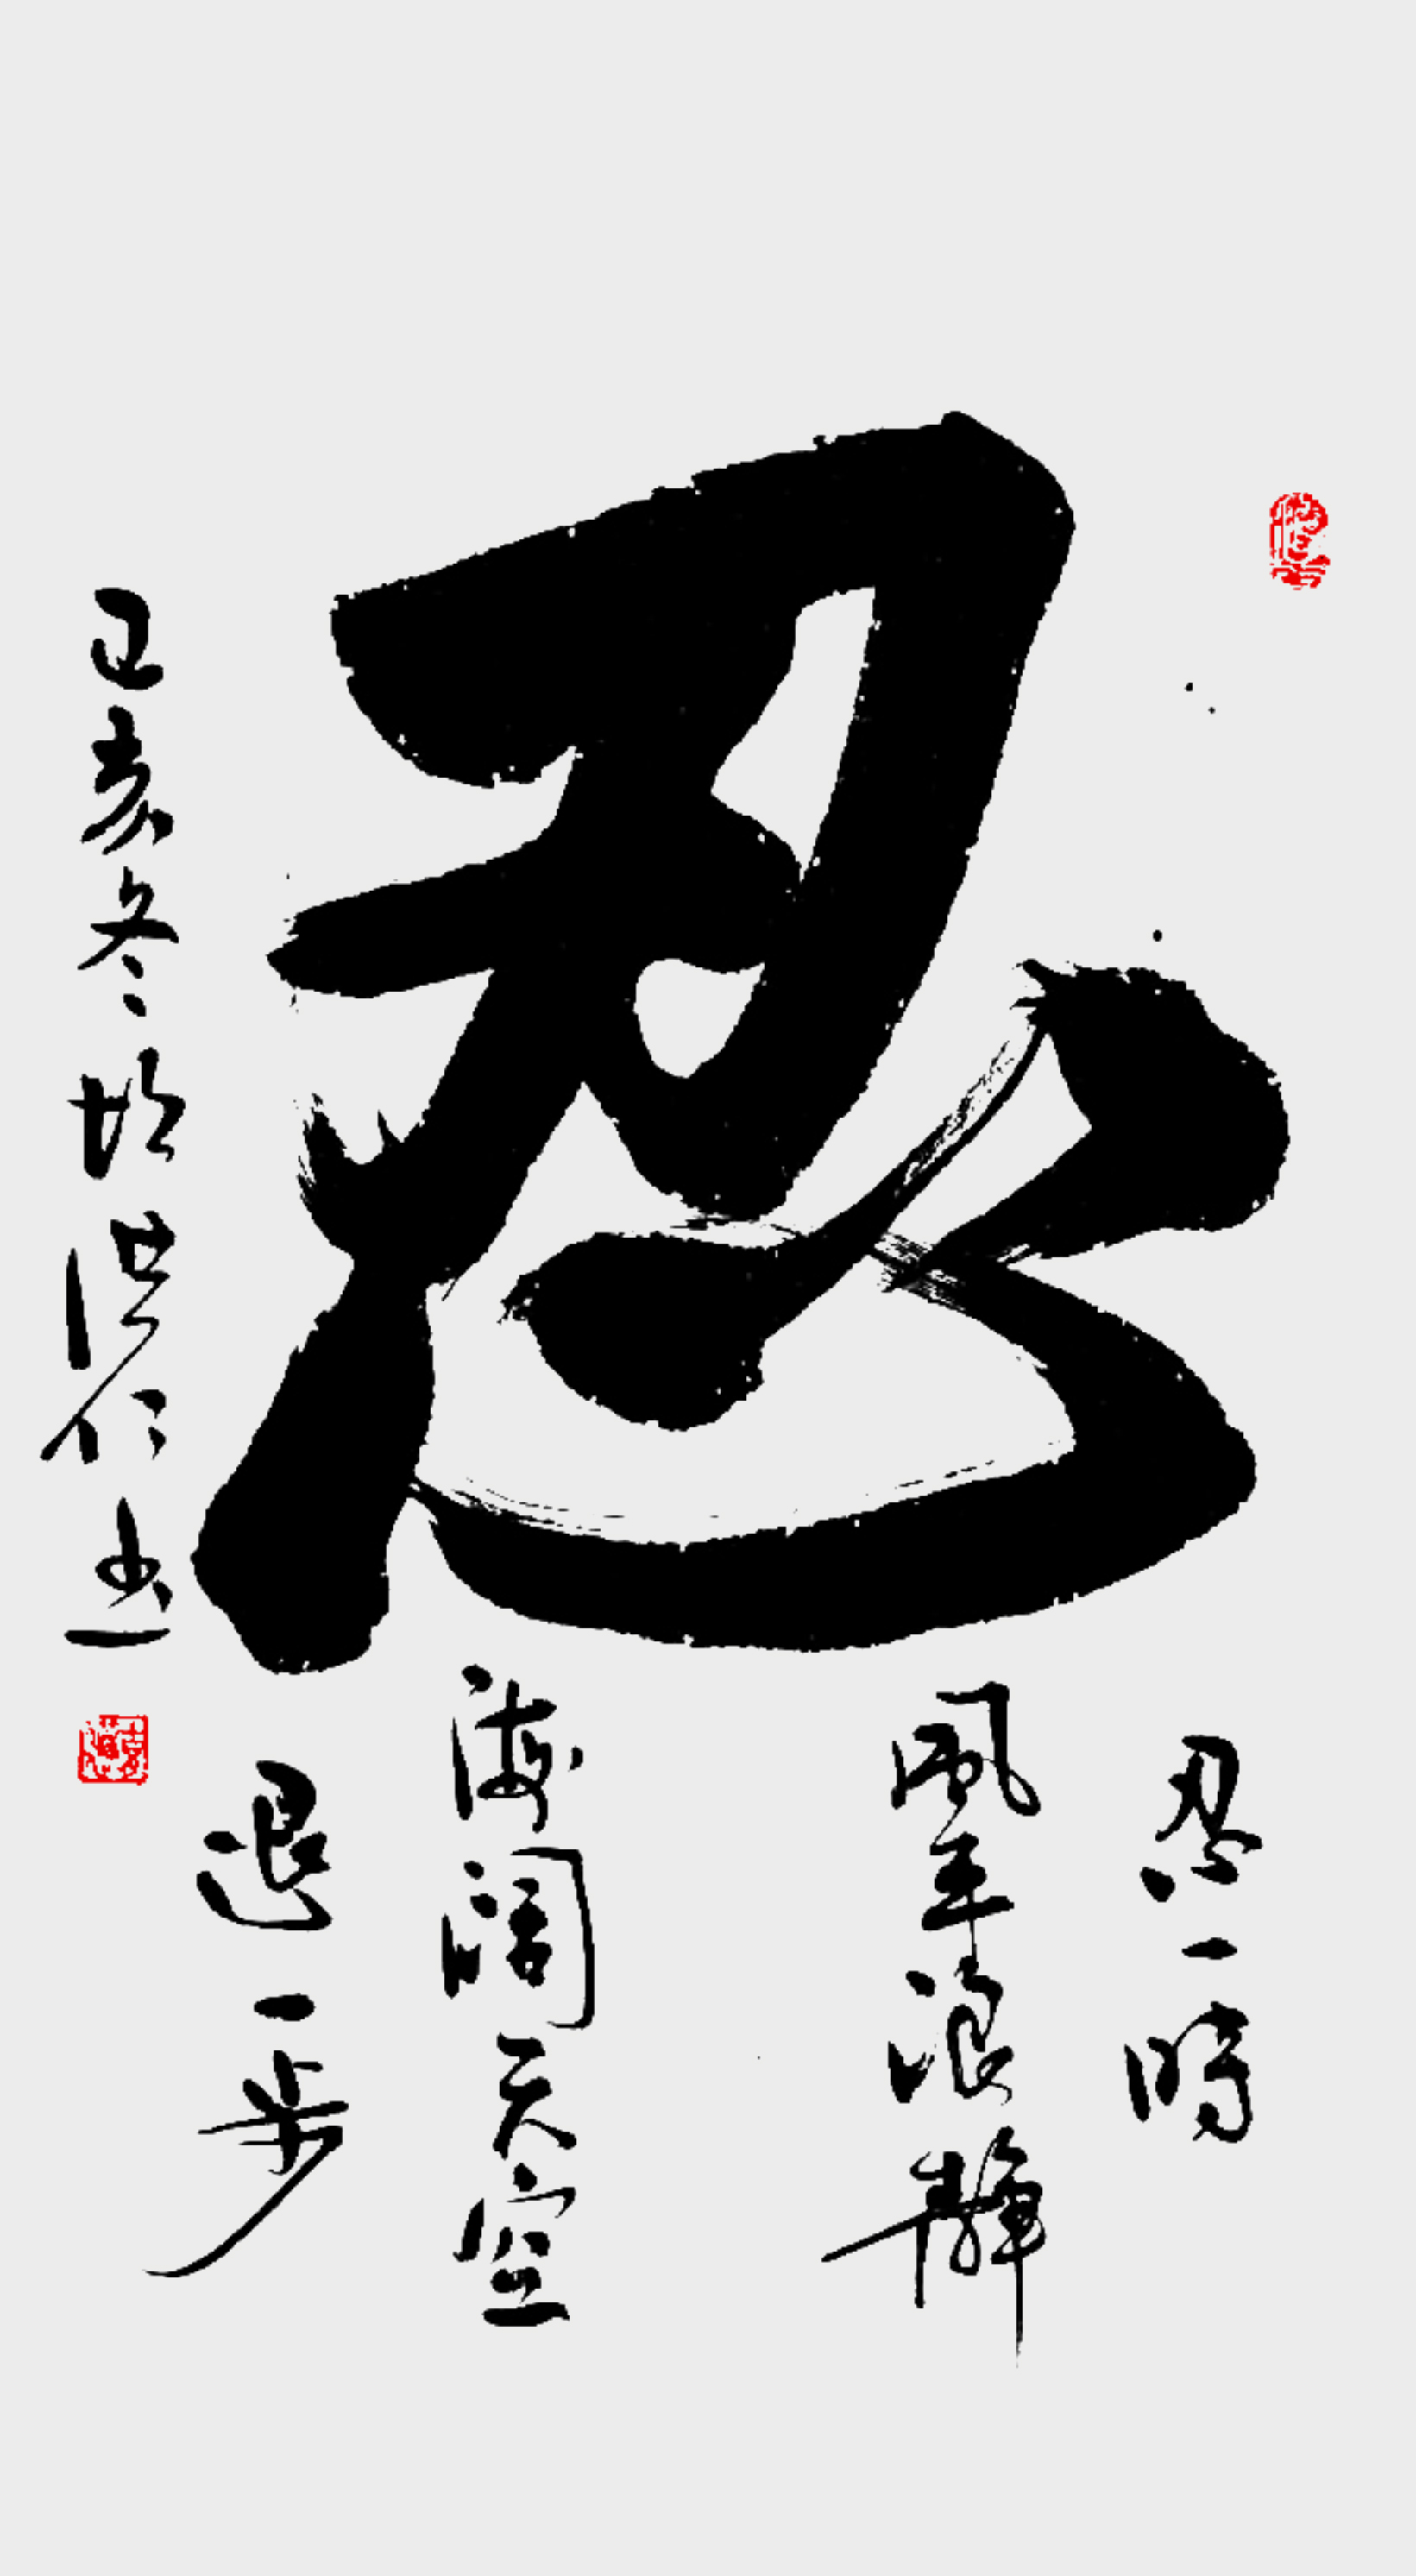 忍
忍一時
風平浪靜
退一步
海闊天空
己亥冬洪仁书